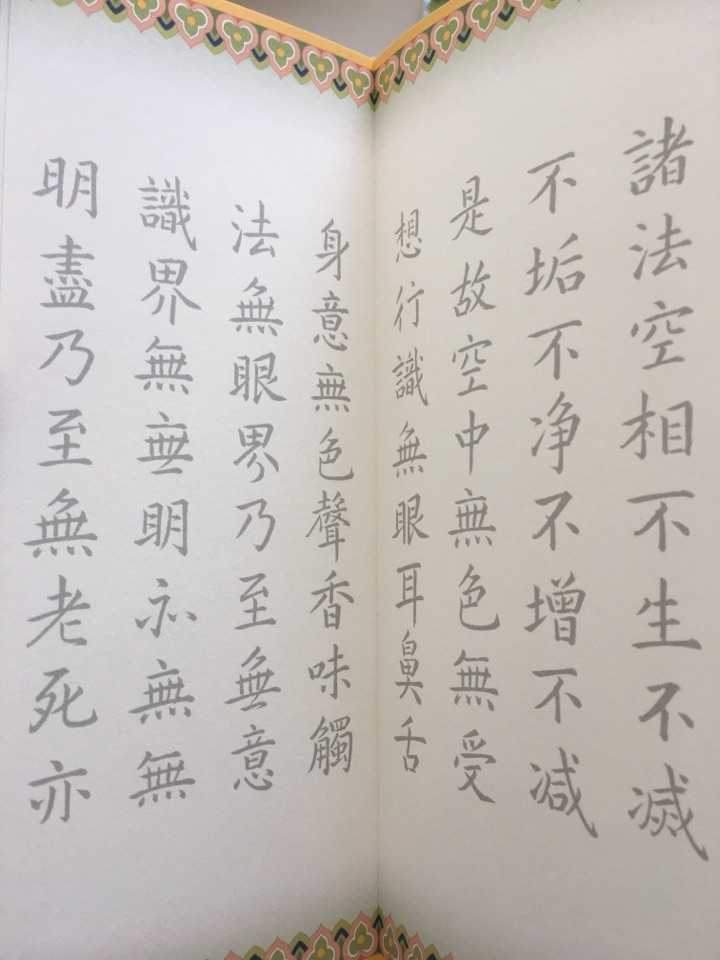 諸法空相不生不滅
不垢不净不增不减
是故空中無色無受
想行識無眼耳鼻舌
身意無色聲香味觸
法無眼界乃至無意
識界無無明亦無無
明盡乃至無老死亦